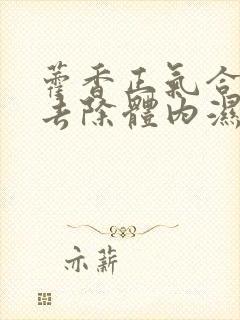 藿香正氣合
去除體內濕
亦薪